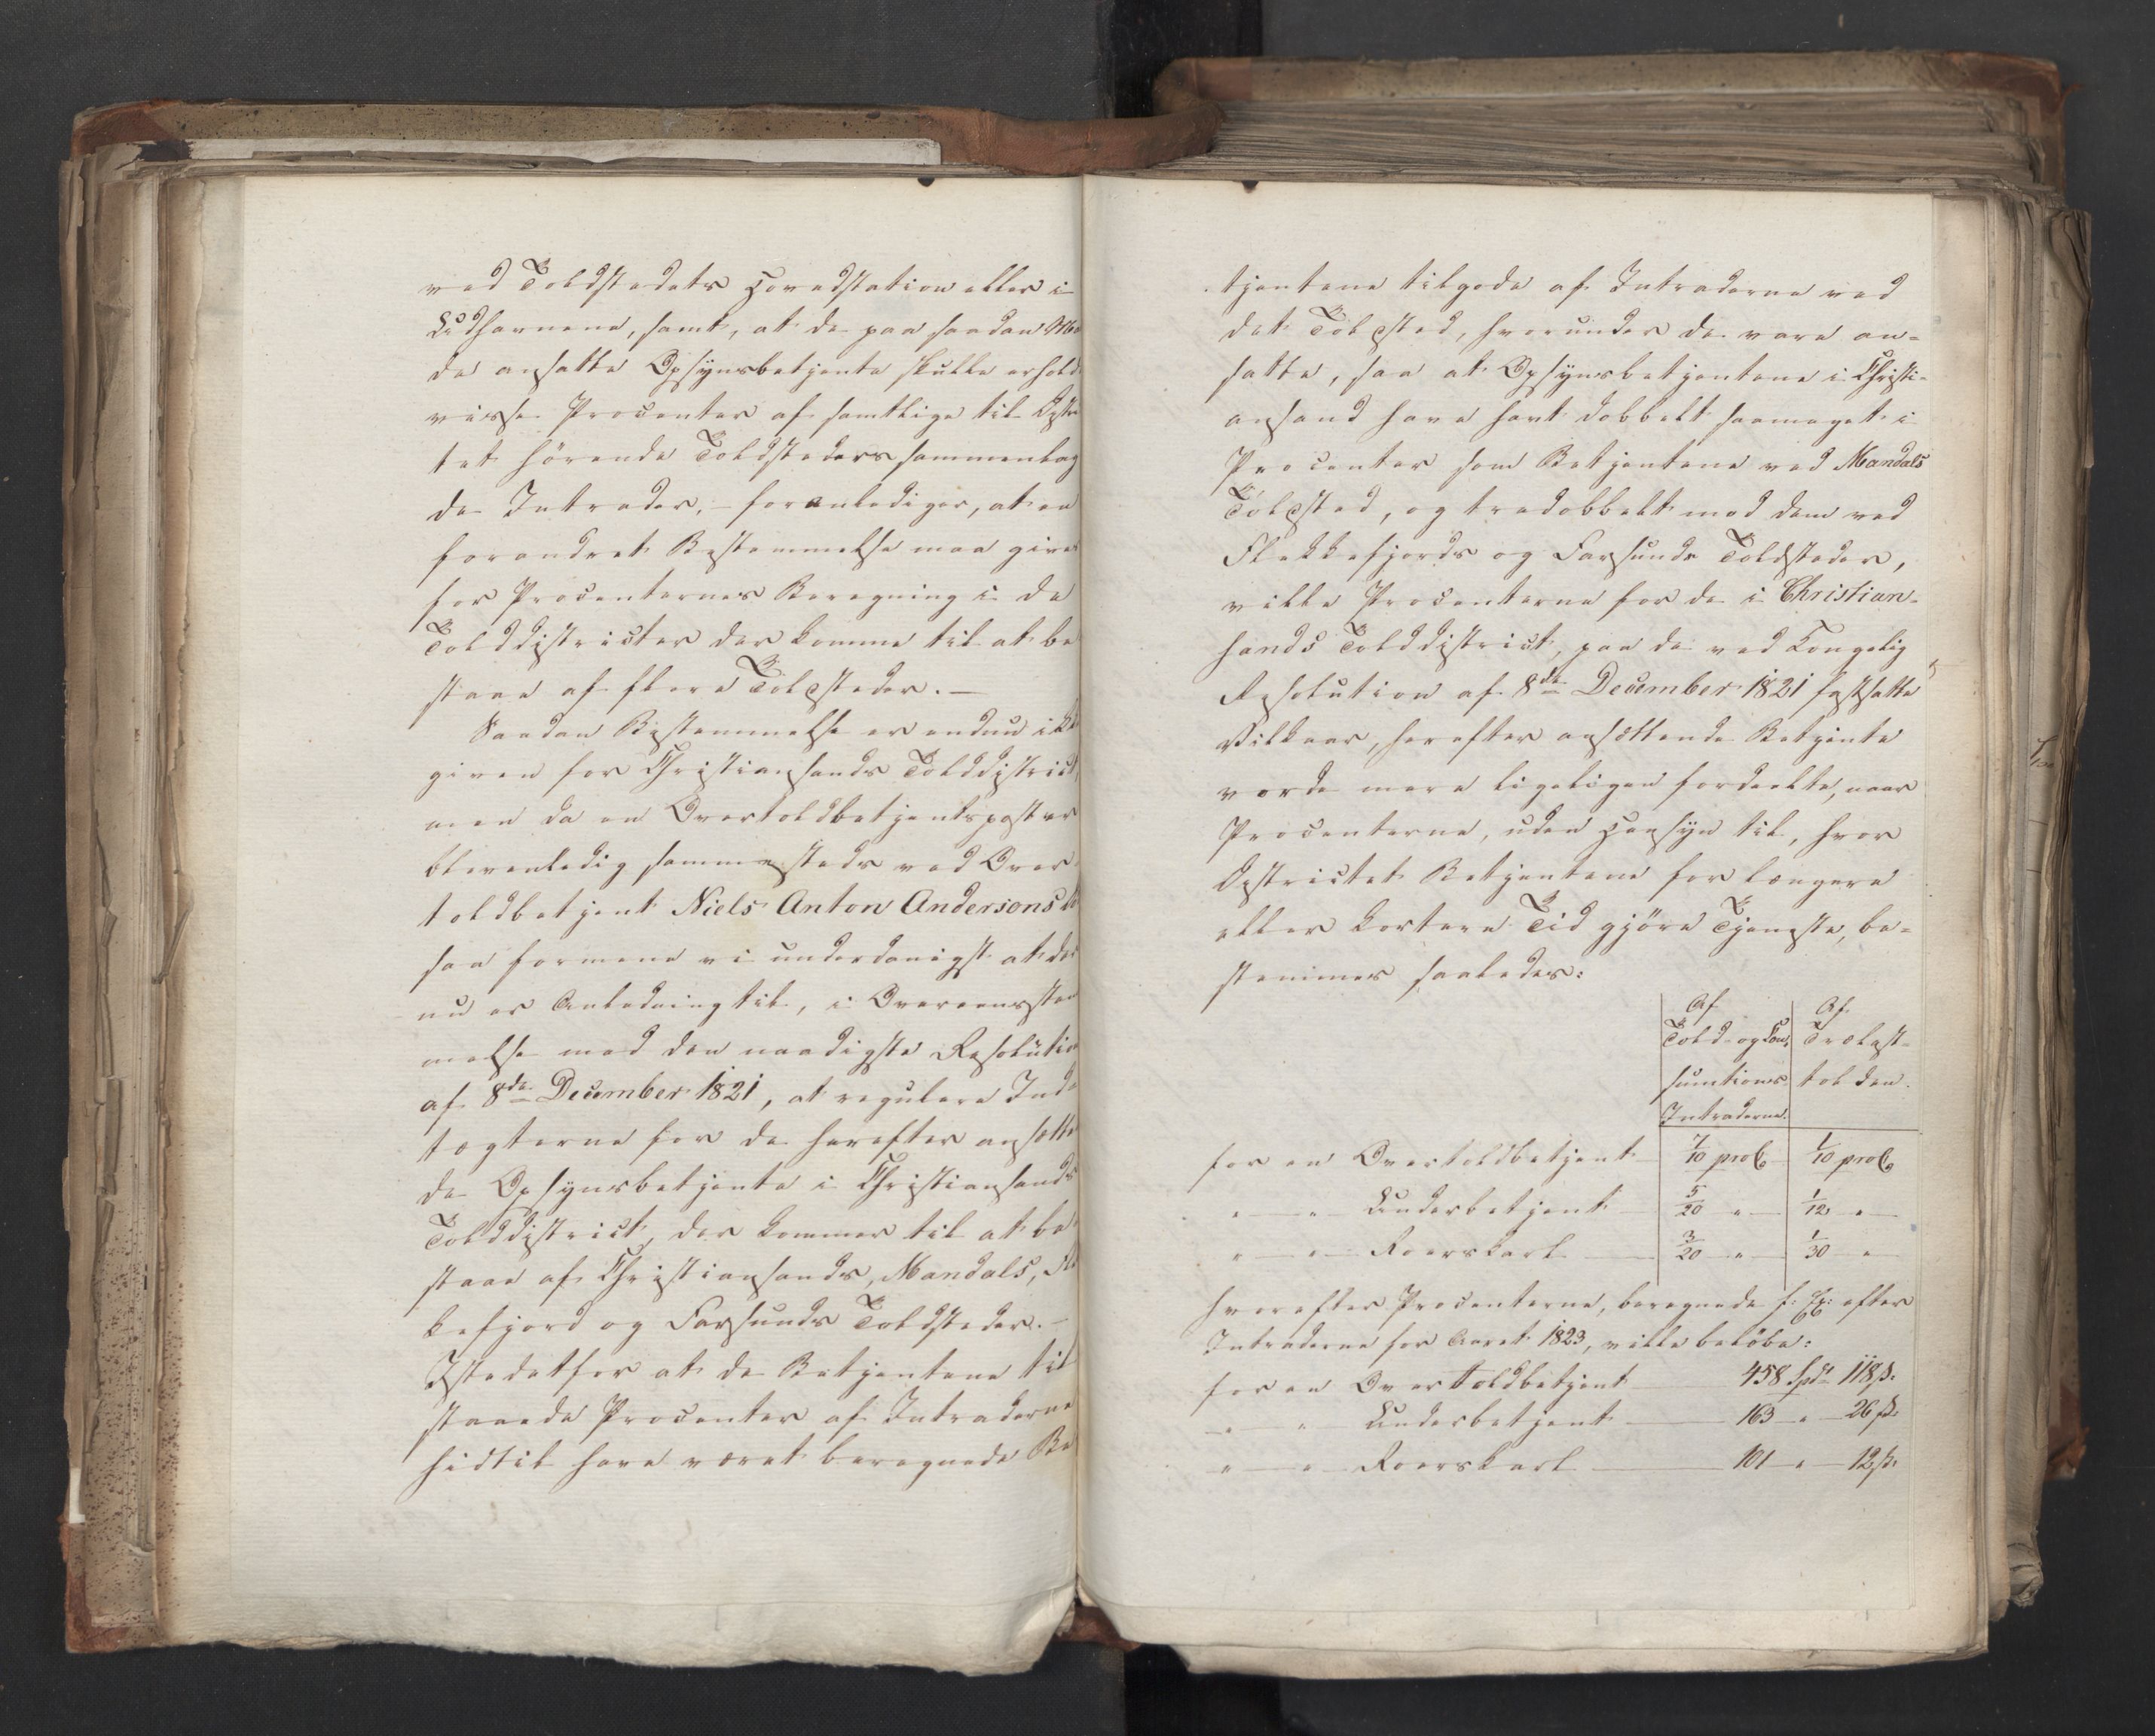 ved Toldstedets Hovedstation eller i
Udhavnene, samt, at de paa saadan Maa
de ansatte Opsynsbetjente skulle erholde
visse Procenter af samtlige til Distric
tet hörende Toldsteders sammenlag
de Intrader, – foranlediger, at en
forandret Bestemmelse maa gives
for Procenternes Beregning i de
Tolddistricter der komme til at be
staae af flere Toldsteder. –
Saadan Bestemmelse er endnu ikke
given for Christiansands Tolddistrict,
men da en Overtoldbetjentspost er
bleven ledig sammesteds ved Over-
toldbetjent Niels Anton Andersons
saa formene vi underdanigst at der
nu er Anledning til, i Overeensstem
melse med den naadigste Resolution
af 8de December 1821, at regulere Ind
tægterne for de herefter ansætten
de Opsynsbetjente i Christiansands
Tolddistrict, der kommer til at be
staae af Christiansands, Mandals, Flek
kefjord og Farsunds Toldsteder. –
Istedetfor at de Betjentene til
staaede Procenter af Intraderne
hidtil have været beregnede Be
tjentene tilgode af Intraderne ved
det Toldsted, hvorunder de vare an-
satte, saa at Opsynsbetjentene i Christi-
ansand have havt dobbelt saameget i
Procenter som Betjentene ved Mandals
Toldsted, og tredobbelt mod dem ved
Flekkefjords og Farsunds Toldsteder,
ville Procenterne for de i Christian-
sands Tolddistrict, paa de ved Kongelig
Resolution af 8de December 1821 fastsatte
Vilkaar, herefter ansættende Betjente
vorde mere ligeligen fordeelte, naar
Procenterne, uden Hensyn til, hvor
Districtet Betjentene for længere
eller kortere Tid gjöre Tjeneste, be-
stemmes saaledes:
Af Af
Told- og Con- Trælast-
sumtions tolden.
Intraderne.
for en Overtoldbetjent 7/10 proC. 1/10 proC.
" — " Underbetjent 5/20 " 1/12 "
" — " Roerskarl 3/20 " 1/30 "
hvorefter Procenterne, beregnede f: Ex: efter
Intraderne for Aaret 1823, ville belöbe:
for en Overtoldbetjent 458 Spd 118 ß.
" — " Underbetjent 163 " 26 ß.
" — " Roerskarl 101 " 12 ß.